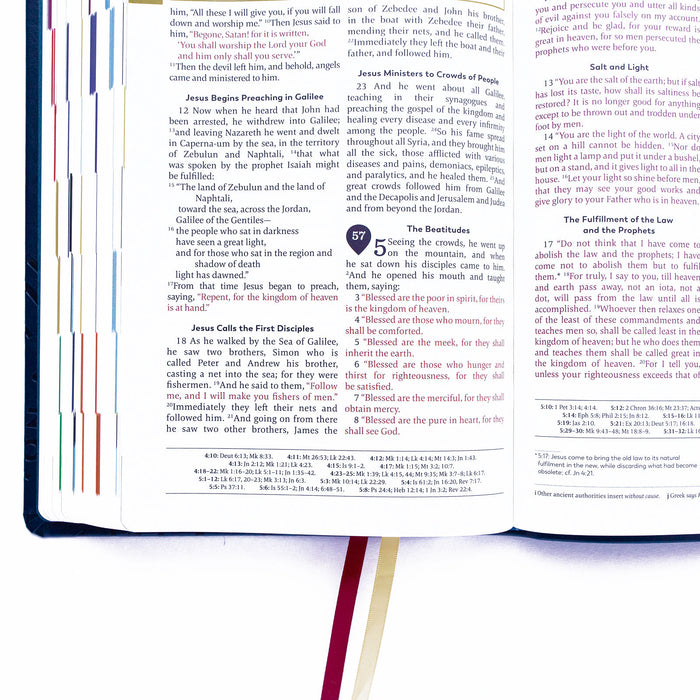 him, "All these I will give you, if you will fall
down and worship me." ¹⁰Then Jesus said to
him, "Begone, Satan! for it is written,
'You shall worship the Lord your God
and him only shall you serve.'"
¹¹Then the devil left him, and behold, angels
came and ministered to him.
Jesus Begins Preaching in Galilee
12 Now when he heard that John had
been arrested, he withdrew into Galilee;
¹³and leaving Nazareth he went and dwelt
in Caperna-um by the sea, in the territory
of Zebulun and Naphtali, ¹⁴that what
was spoken by the prophet Isaiah might
be fulfilled:
¹⁵ "The land of Zebulun and the land of
Naphtali,
toward the sea, across the Jordan,
Galilee of the Gentiles—
¹⁶ the people who sat in darkness
have seen a great light,
and for those who sat in the region and
shadow of death
light has dawned."
¹⁷From that time Jesus began to preach,
saying, "Repent, for the kingdom of heaven
is at hand."
Jesus Calls the First Disciples
18 As he walked by the Sea of Galilee,
he saw two brothers, Simon who is
called Peter and Andrew his brother,
casting a net into the sea; for they were
fishermen. ¹⁹And he said to them, "Follow
me, and I will make you fishers of men."
²⁰Immediately they left their nets and
followed him. ²¹And going on from there
he saw two other brothers, James the
son of Zebedee and John his brother,
in the boat with Zebedee their father,
mending their nets, and he called them.
²²Immediately they left the boat and their
father, and followed him.
Jesus Ministers to Crowds of People
23 And he went about all Galilee,
teaching in their synagogues and
preaching the gospel of the kingdom and
healing every disease and every infirmity
among the people. ²⁴So his fame spread
throughout all Syria, and they brought him
all the sick, those afflicted with various
diseases and pains, demoniacs, epileptics,
and paralytics, and he healed them. ²⁵And
great crowds followed him from Galilee
and the Decapolis and Jerusalem and Judea
and from beyond the Jordan.
The Beatitudes
57
5 Seeing the crowds, he went up
on the mountain, and when
he sat down his disciples came to him.
²And he opened his mouth and taught
them, saying:
3 "Blessed are the poor in spirit, for theirs
is the kingdom of heaven.
4 "Blessed are those who mourn, for they
shall be comforted.
5 "Blessed are the meek, for they shall
inherit the earth.
6 "Blessed are those who hunger and
thirst for righteousness, for they shall
be satisfied.
7 "Blessed are the merciful, for they shall
obtain mercy.
8 "Blessed are the pure in heart, for they
shall see God.
4:10: Deut 6:13; Mk 8:33. 4:11: Mt 26:53; Lk 22:43. 4:12: Mk 1:14; Lk 4:14; Mt 14:3; Jn 1:43.
4:13: Jn 2:12; Mk 1:21; Lk 4:23. 4:15: Is 9:1–2. 4:17: Mk 1:15; Mt 3:2; 10:7.
4:18–22: Mk 1:16–20; Lk 5:1–11; Jn 1:35–42. 4:23–25: Mk 1:39; Lk 4:15, 44; Mt 9:35; Mk 3:7–8; Lk 6:17.
5:1–12: Lk 6:17, 20–23; Mk 3:13; Jn 6:3. 5:3: Mk 10:14; Lk 22:29. 5:4: Is 61:2; Jn 16:20, Rev 7:17.
5:5: Ps 37:11. 5:6: Is 55:1–2; Jn 4:14; 6:48–51. 5:8: Ps 24:4; Heb 12:14; 1 Jn 3:2, Rev 22:4.
you and persecute you and utter all kinds
of evil against you falsely on my account.
¹²Rejoice and be glad, for your reward is
great in heaven, for so men persecuted the
prophets who were before you.
Salt and Light
13 "You are the salt of the earth; but if salt
has lost its taste, how shall its saltiness be
restored? It is no longer good for anything
except to be thrown out and trodden under
foot by men.
14 "You are the light of the world. A city
set on a hill cannot be hidden. ¹⁵Nor do
men light a lamp and put it under a bushel,
but on a stand, and it gives light to all in the
house. ¹⁶Let your light so shine before men,
that they may see your good works and
give glory to your Father who is in heaven.
The Fulfillment of the Law
and the Prophets
17 "Do not think that I have come to
abolish the law and the prophets; I have
come not to abolish them but to fulfil
them.* ¹⁸For truly, I say to you, till heaven
and earth pass away, not an iota, not a
dot, will pass from the law until all is
accomplished. ¹⁹Whoever then relaxes one
of the least of these commandments and
teaches men so, shall be called least in the
kingdom of heaven; but he who does them
and teaches them shall be called great in
the kingdom of heaven. ²⁰For I tell you,
unless your righteousness exceeds that of
5:10: 1 Pet 3:14; 4:14. 5:12: 2 Chron 36:16; Mt 23:37; Acts
5:14: Eph 5:8; Phil 2:15; Jn 8:12. 5:15–16: Lk 11
5:19: Jas 2:10. 5:21: Ex 20:13; Deut 5:17; 16:18.
5:29–30: Mk 9:43–48; Mt 18:8–9. 5:31–32: Lk 16
* 5:17: Jesus came to bring the old law to its natural
fulfilment in the new, while discarding what had become
obsolete: cf. Jn 4:21.
i Other ancient authorities insert without cause. j Greek says